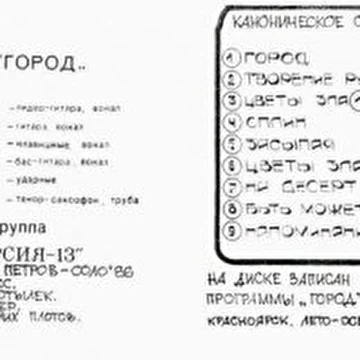 "ГОРОД„
– лидер-гитара, вокал
– гитара, вокал
– клавишные, вокал
– бас-гитара, вокал
– ударные
– тенор-саксофон, труба
группа
РСИЯ-13"
ПЕТРОВ-СОЛО'86
СС.
ОТЫЛЕК.
ЕР.
ОИХ ПЛОТОВ.
КАНОНИЧЕСКОЕ С
1 ГОРОД
2 ТВОРЕНИЕ Р
3 ЦВЕТЫ ЗЛА
4 СПЛИН
5 ЗАСЫПАЯ
6 ЦВЕТЫ ЗЛА
7 НА ДЕСЕРТ
8 БЫТЬ МОЖЕТ
9 НАПОМИНАНИ
НА ДИСКЕ ЗАПИСАН
ПРОГРАММЫ „ГОРОД"
КРАСНОЯРСК, ЛЕТО-ОСЕ